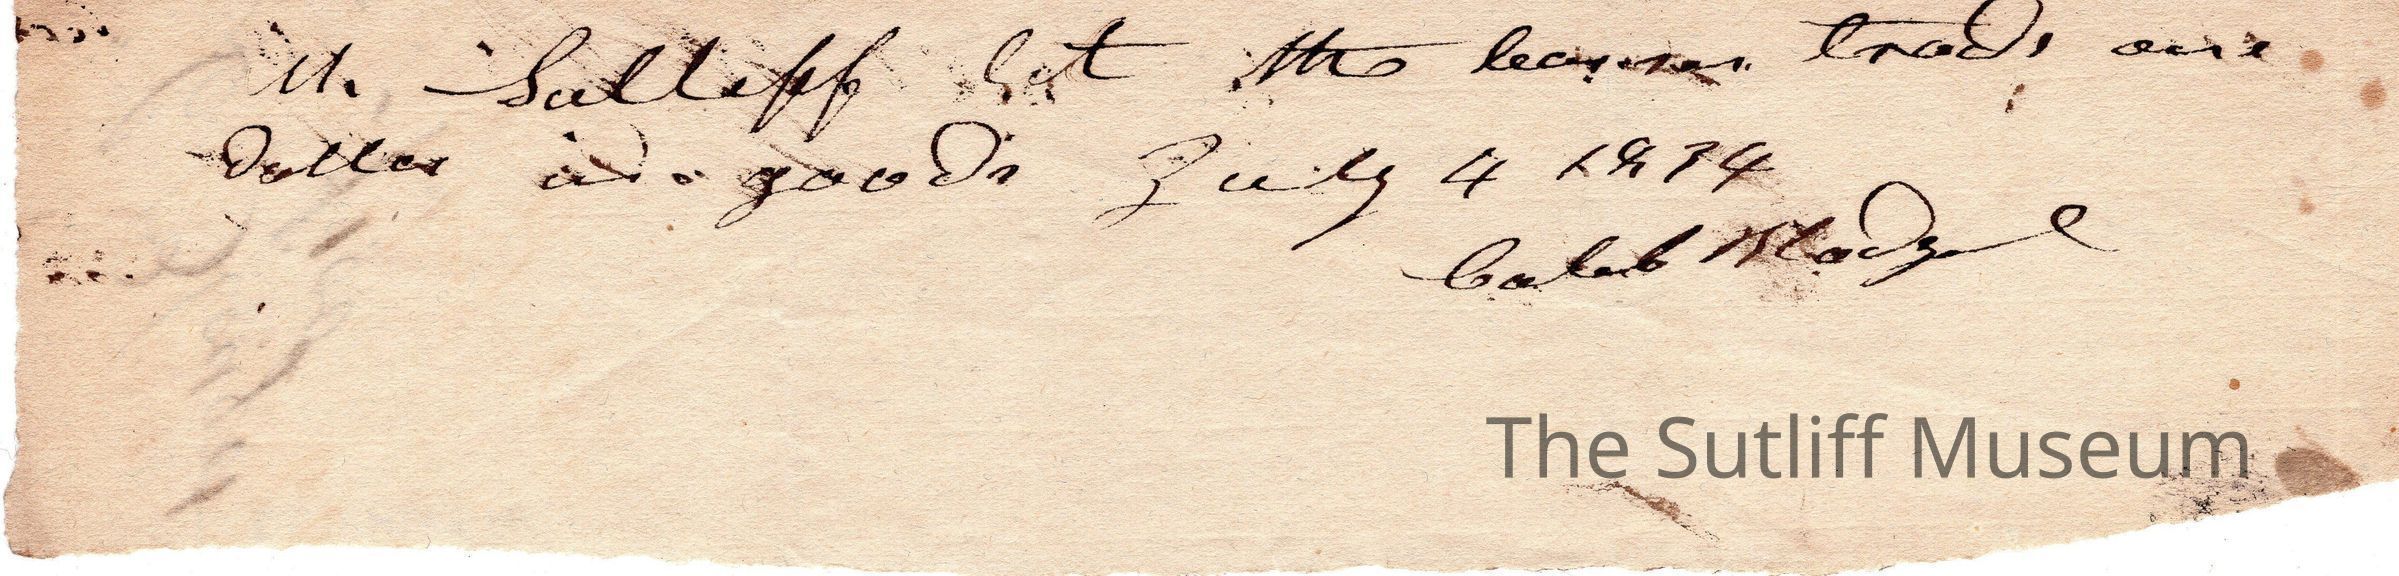 Mr Sutleff Let the bearer trade one
Doller in goods July 4 1834
Caleb Blodget
The Sutliff Museum